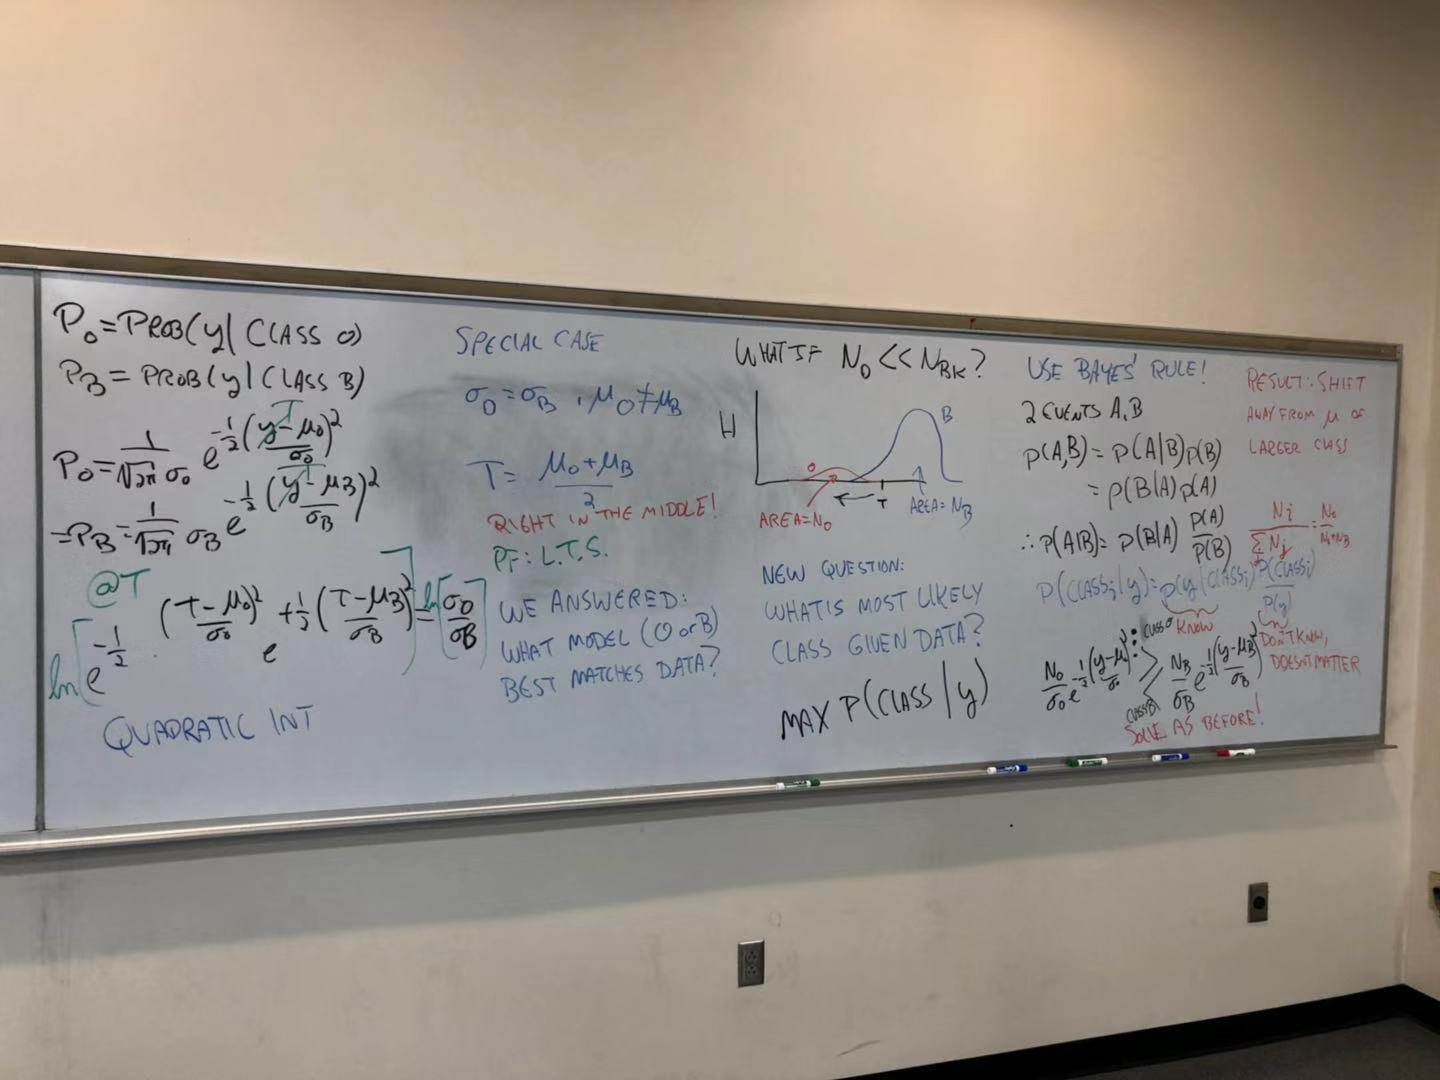 P₀ = PROB(y | CLASS O)
P_B = PROB(y | CLASS B)
P₀ = 1/√2π σ₀ e^-½((y-μ₀)/σ₀)²
T
= P_B = 1/√2π σ_B e^-½((y-μ_B)/σ_B)²
T
@T
ln[e^-½ ((T-μ₀)/σ₀)² + ½((T-μ_B)/σ_B)²] = ln[σ₀/σ_B]
e
QUADRATIC IN T
SPECIAL CASE
σ₀ = σ_B , μ₀ ≠ μ_B
T = (μ₀ + μ_B)/2
RIGHT IN THE MIDDLE!
PF: L.T.S.
WE ANSWERED:
WHAT MODEL (O or B)
BEST MATCHES DATA?
WHAT IF N₀ << N_BK?
H
B
O
T
AREA = N₀
AREA = N_B
NEW QUESTION:
WHAT IS MOST LIKELY
CLASS GIVEN DATA?
MAX P(CLASS | y)
USE BAYES' RULE!
2 EVENTS A, B
P(A,B) = P(A|B)P(B)
= P(B|A)P(A)
∴ P(A|B) = P(B|A) P(A)/P(B)
P(CLASSᵢ|y) = P(y|CLASSᵢ)P(CLASSᵢ)/P(y)
KNOW
DON'T KNOW,
DOESN'T MATTER
N₀/σ₀ e^-½((y-μ₀)/σ₀)² CLASS O > CLASS B N_B/σ_B e^-½((y-μ_B)/σ_B)²
SOLVE AS BEFORE!
RESULT: SHIFT
AWAY FROM μ OF
LARGER CLASS
Nᵢ/ΣNⱼ = N₀/(N₀+N_B)